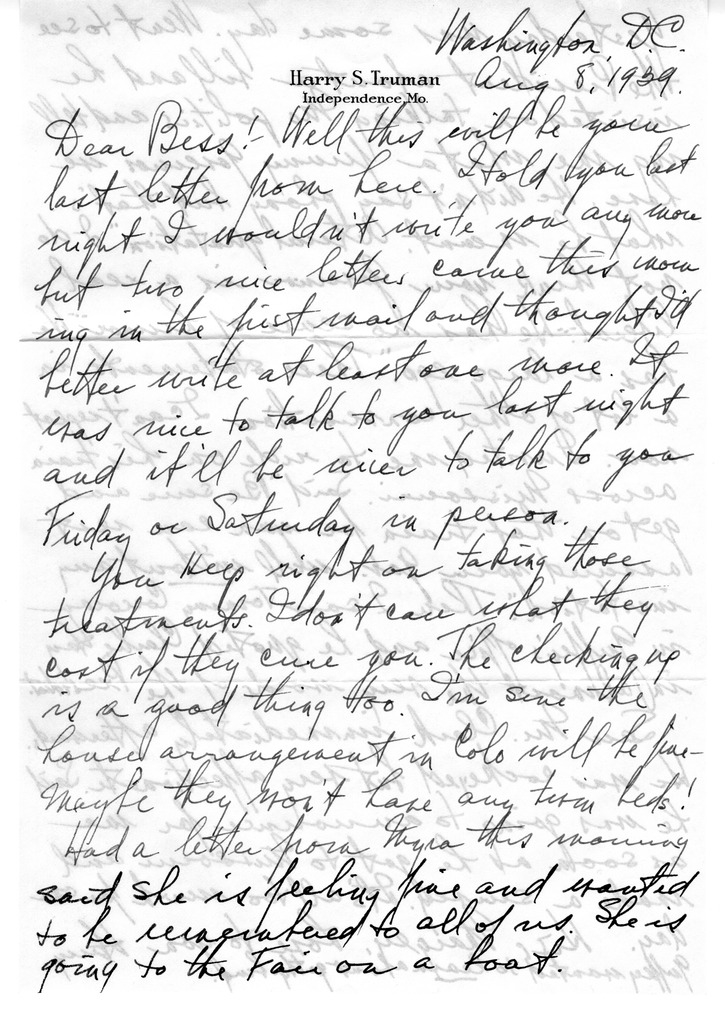 Washington, D.C.
Harry S. Truman
Aug 8, 1939.
Independence, Mo.
Dear Bess:- Well this will be your
last letter from here. I told you last
night I wouldn't write you any more
but two nice letters came this morn
ing in the first mail and thought I'd
better write at least one more. It
was nice to talk to you last night
and it'll be nicer to talk to you
Friday or Saturday in person.
You keep right on taking those
treatments. I don't care what they
cost if they cure you. The checking up
is a good thing too. I'm sure the
house arrangement in Colo will be fine-
Maybe they won't have any twin beds!
Had a letter from Myra this morning
said she is feeling fine and wanted
to be remembered to all of us. She is
going to the Fair on a boat.